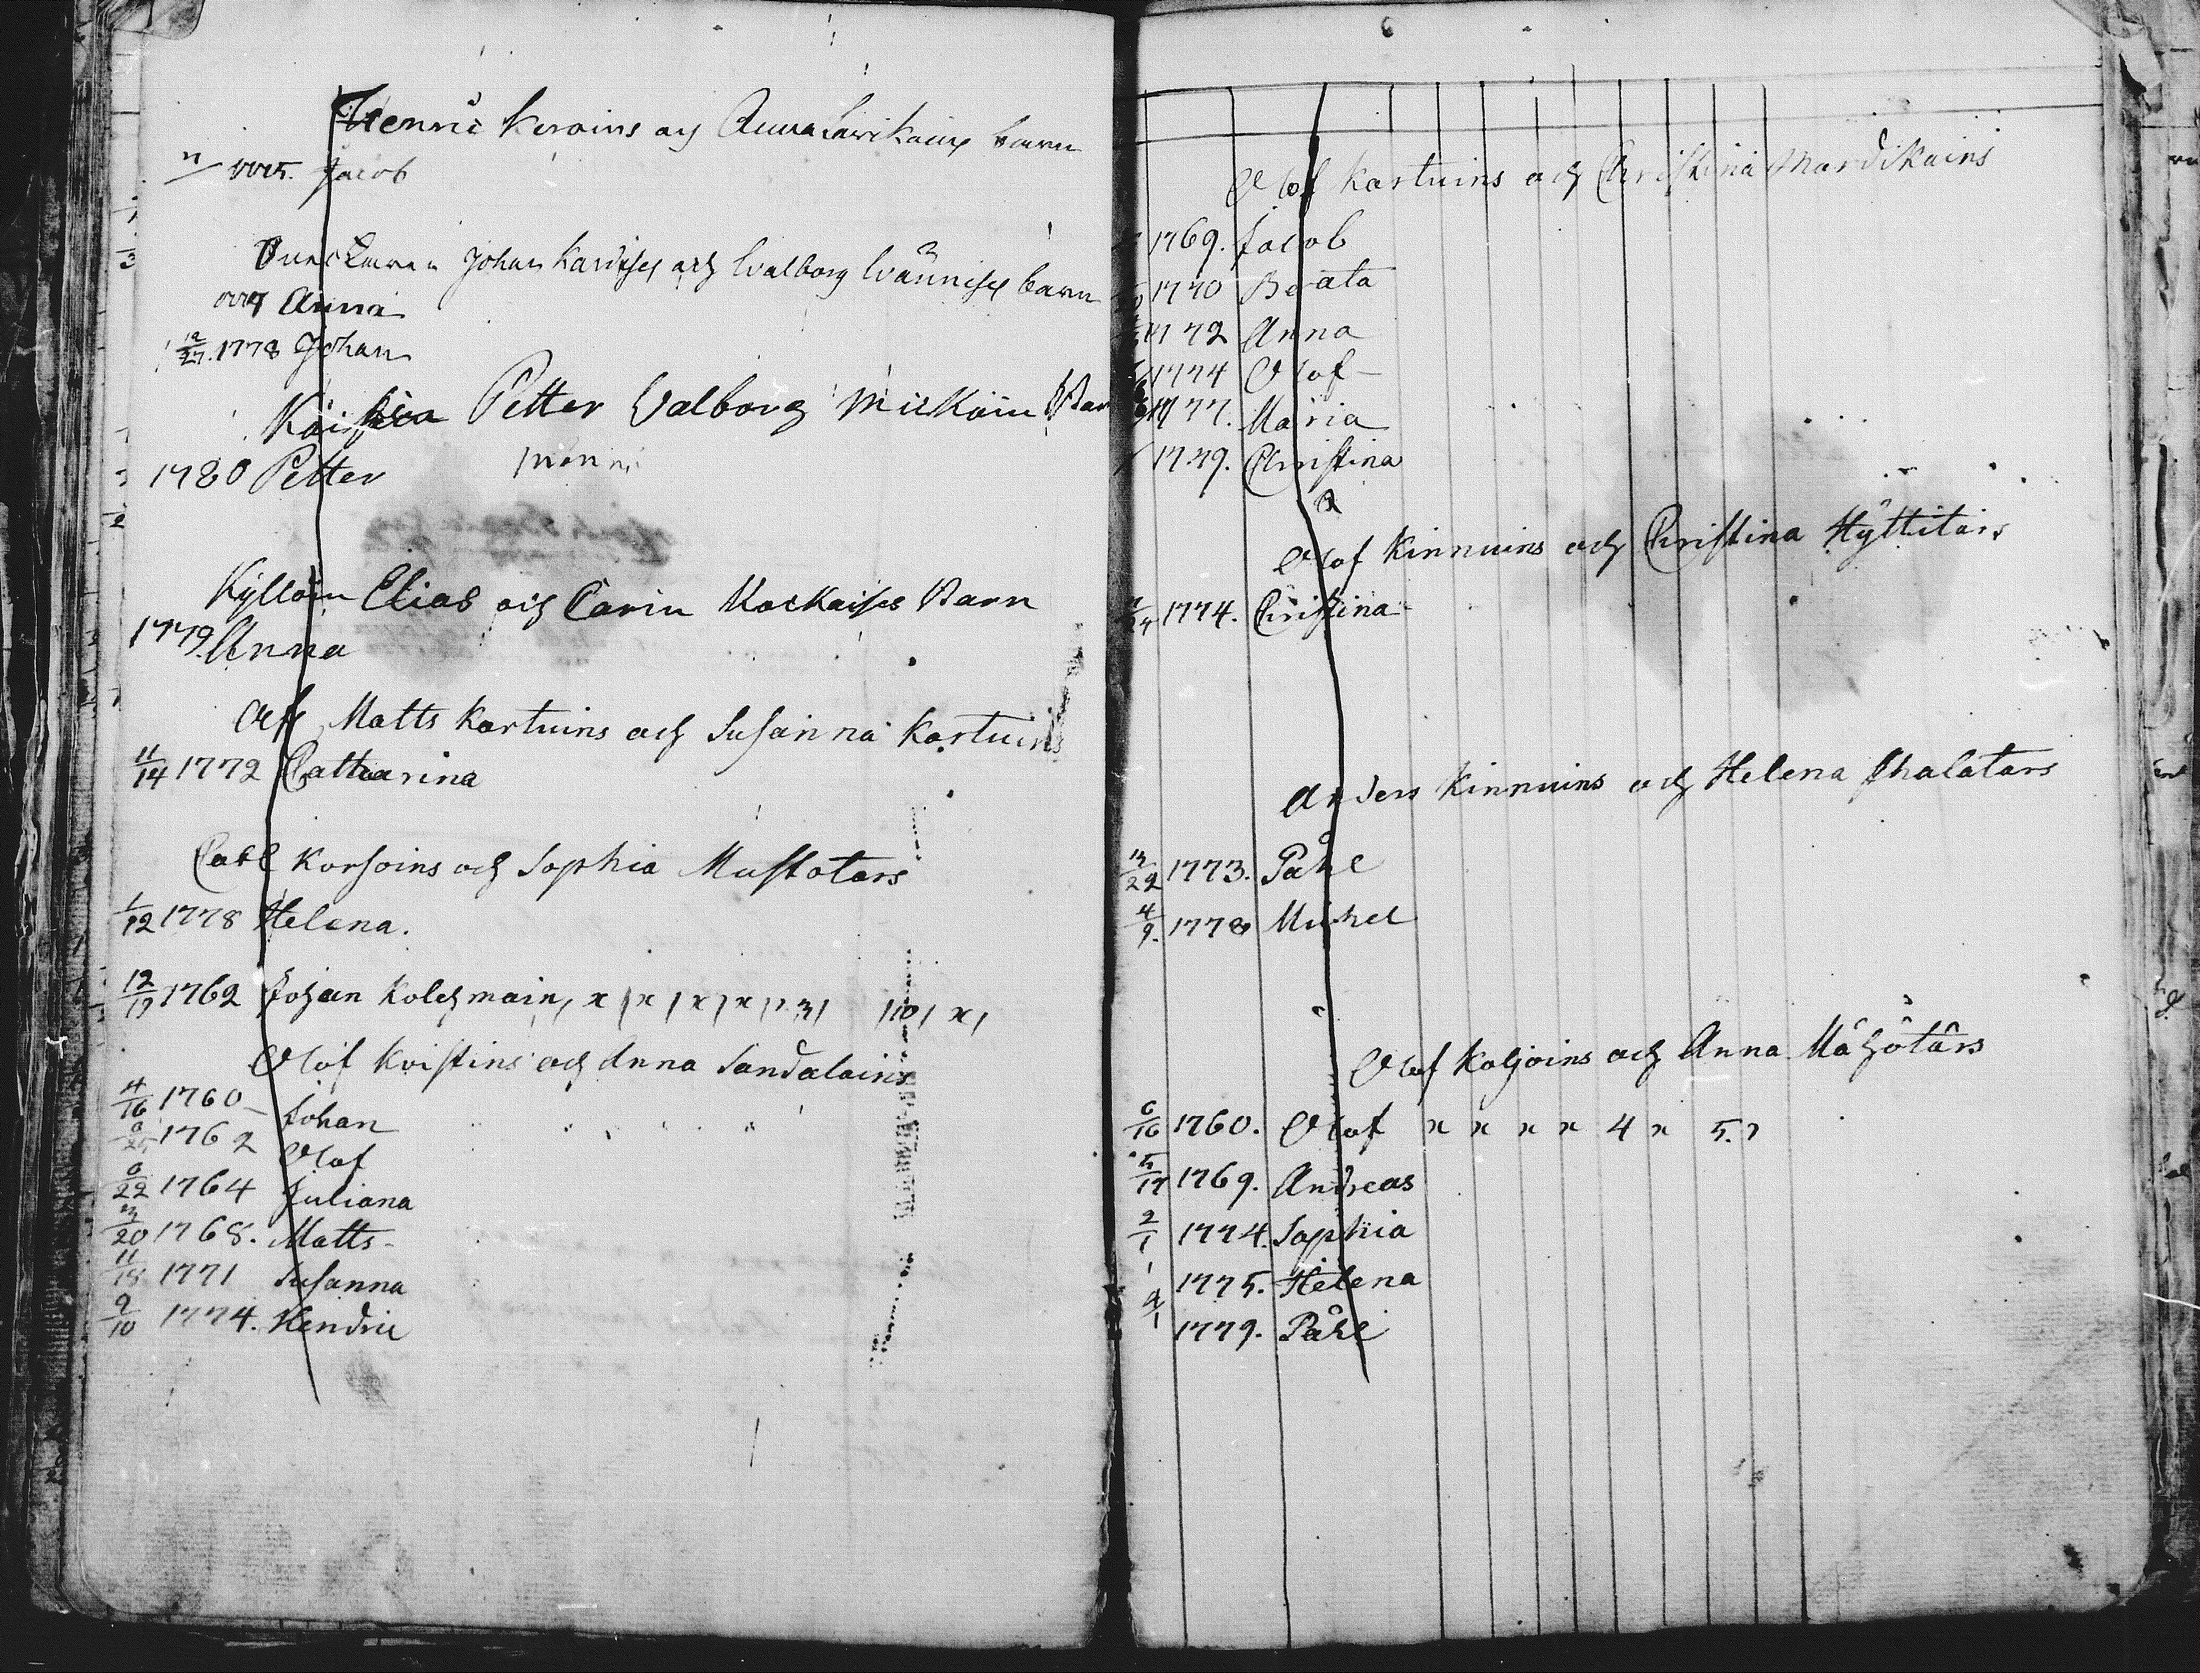 Henric Keroins och Anna barn
Jacob
Johan och Walborg barn
Anna
12/27. 1778 Johan
Petter Valborg
1780 Petter
Kyllöin Elias och Carin Kockaises Barn
1779. Anna
Matts Kortuins och Susanna Kortuins
11/14 1772 Catharina
Carl Korsoins och Sophia Mustotars
1/12 1778 Helena.
12/17 1762 Johan Kolehmain, x x x x 10 x
Olof Kristins och Anna Sandalains
1760 Johan
1762 Olof
6/22 1764 Juliana
3/20 1768. Matts
11/18 1771 Susanna
9/10 1774. Hendric
6
Olof Kortuins och Christina Mardikains
1769. Jacob
1770 Beata
1772 Anna
1774 Olof
1777. Maria
1779. Christina
Olof Kinnuins och Christina Hyttitärs
1774. Christina
Anders Kinnuins och Helena
12/29 1773. Påhl
4/9. 1778 Michel
Olof Koljoins och Anna
6/16 1760. Olof x x x x 4 x 5.
5/17 1769. Andreas
2/1 1774. Sophia
1775. Helena
1779. Påhl